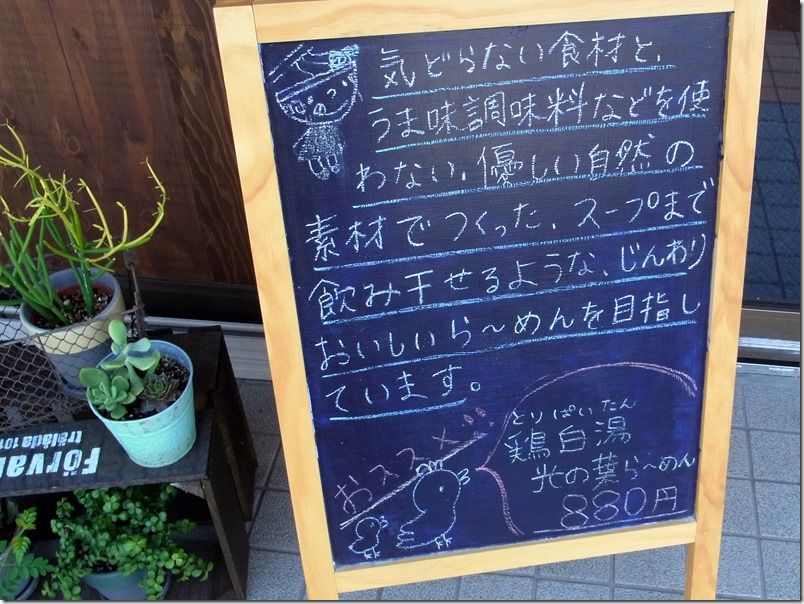 気どらない食材と、
うま味調味料などを使
わない、優しい自然の
素材でつくった、スープまで
飲み干せるような、じんわり
おいしいら〜めんを目指し
ています。
おススメ
とりぱいたん
鶏白湯
木の葉ら〜めん
880円
Förva
trälåda 101